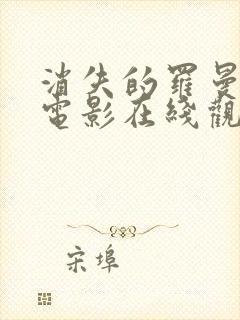 消失的羅曼
電影在綫觀
宋埠